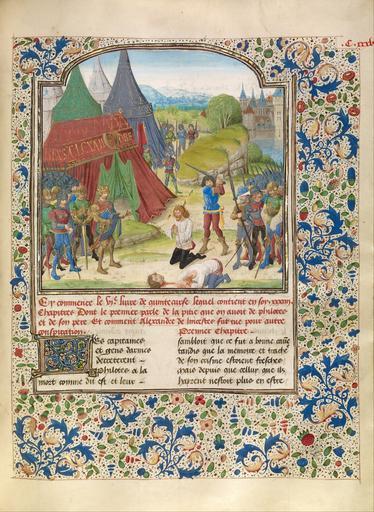 Cy commence le vi.e liure de quinte curse lequel contient en son xxxiii
Chapitres Dont le premier parle de la pitie que on auoit de philotes
et de son pere Et comment Alexandre de lincestre fut tue pour autre
conspiration
Premier Chapitre
Les capitaines
et gens darmes
decreterent
Philotes a la
mort comme dit est et leur
sambloit que ce fut a bonne cause
tandis que la memoire et trache
de son crisme estoient fresches
mais depuis que cellui que ilz
hayoient nestoit plus en estre